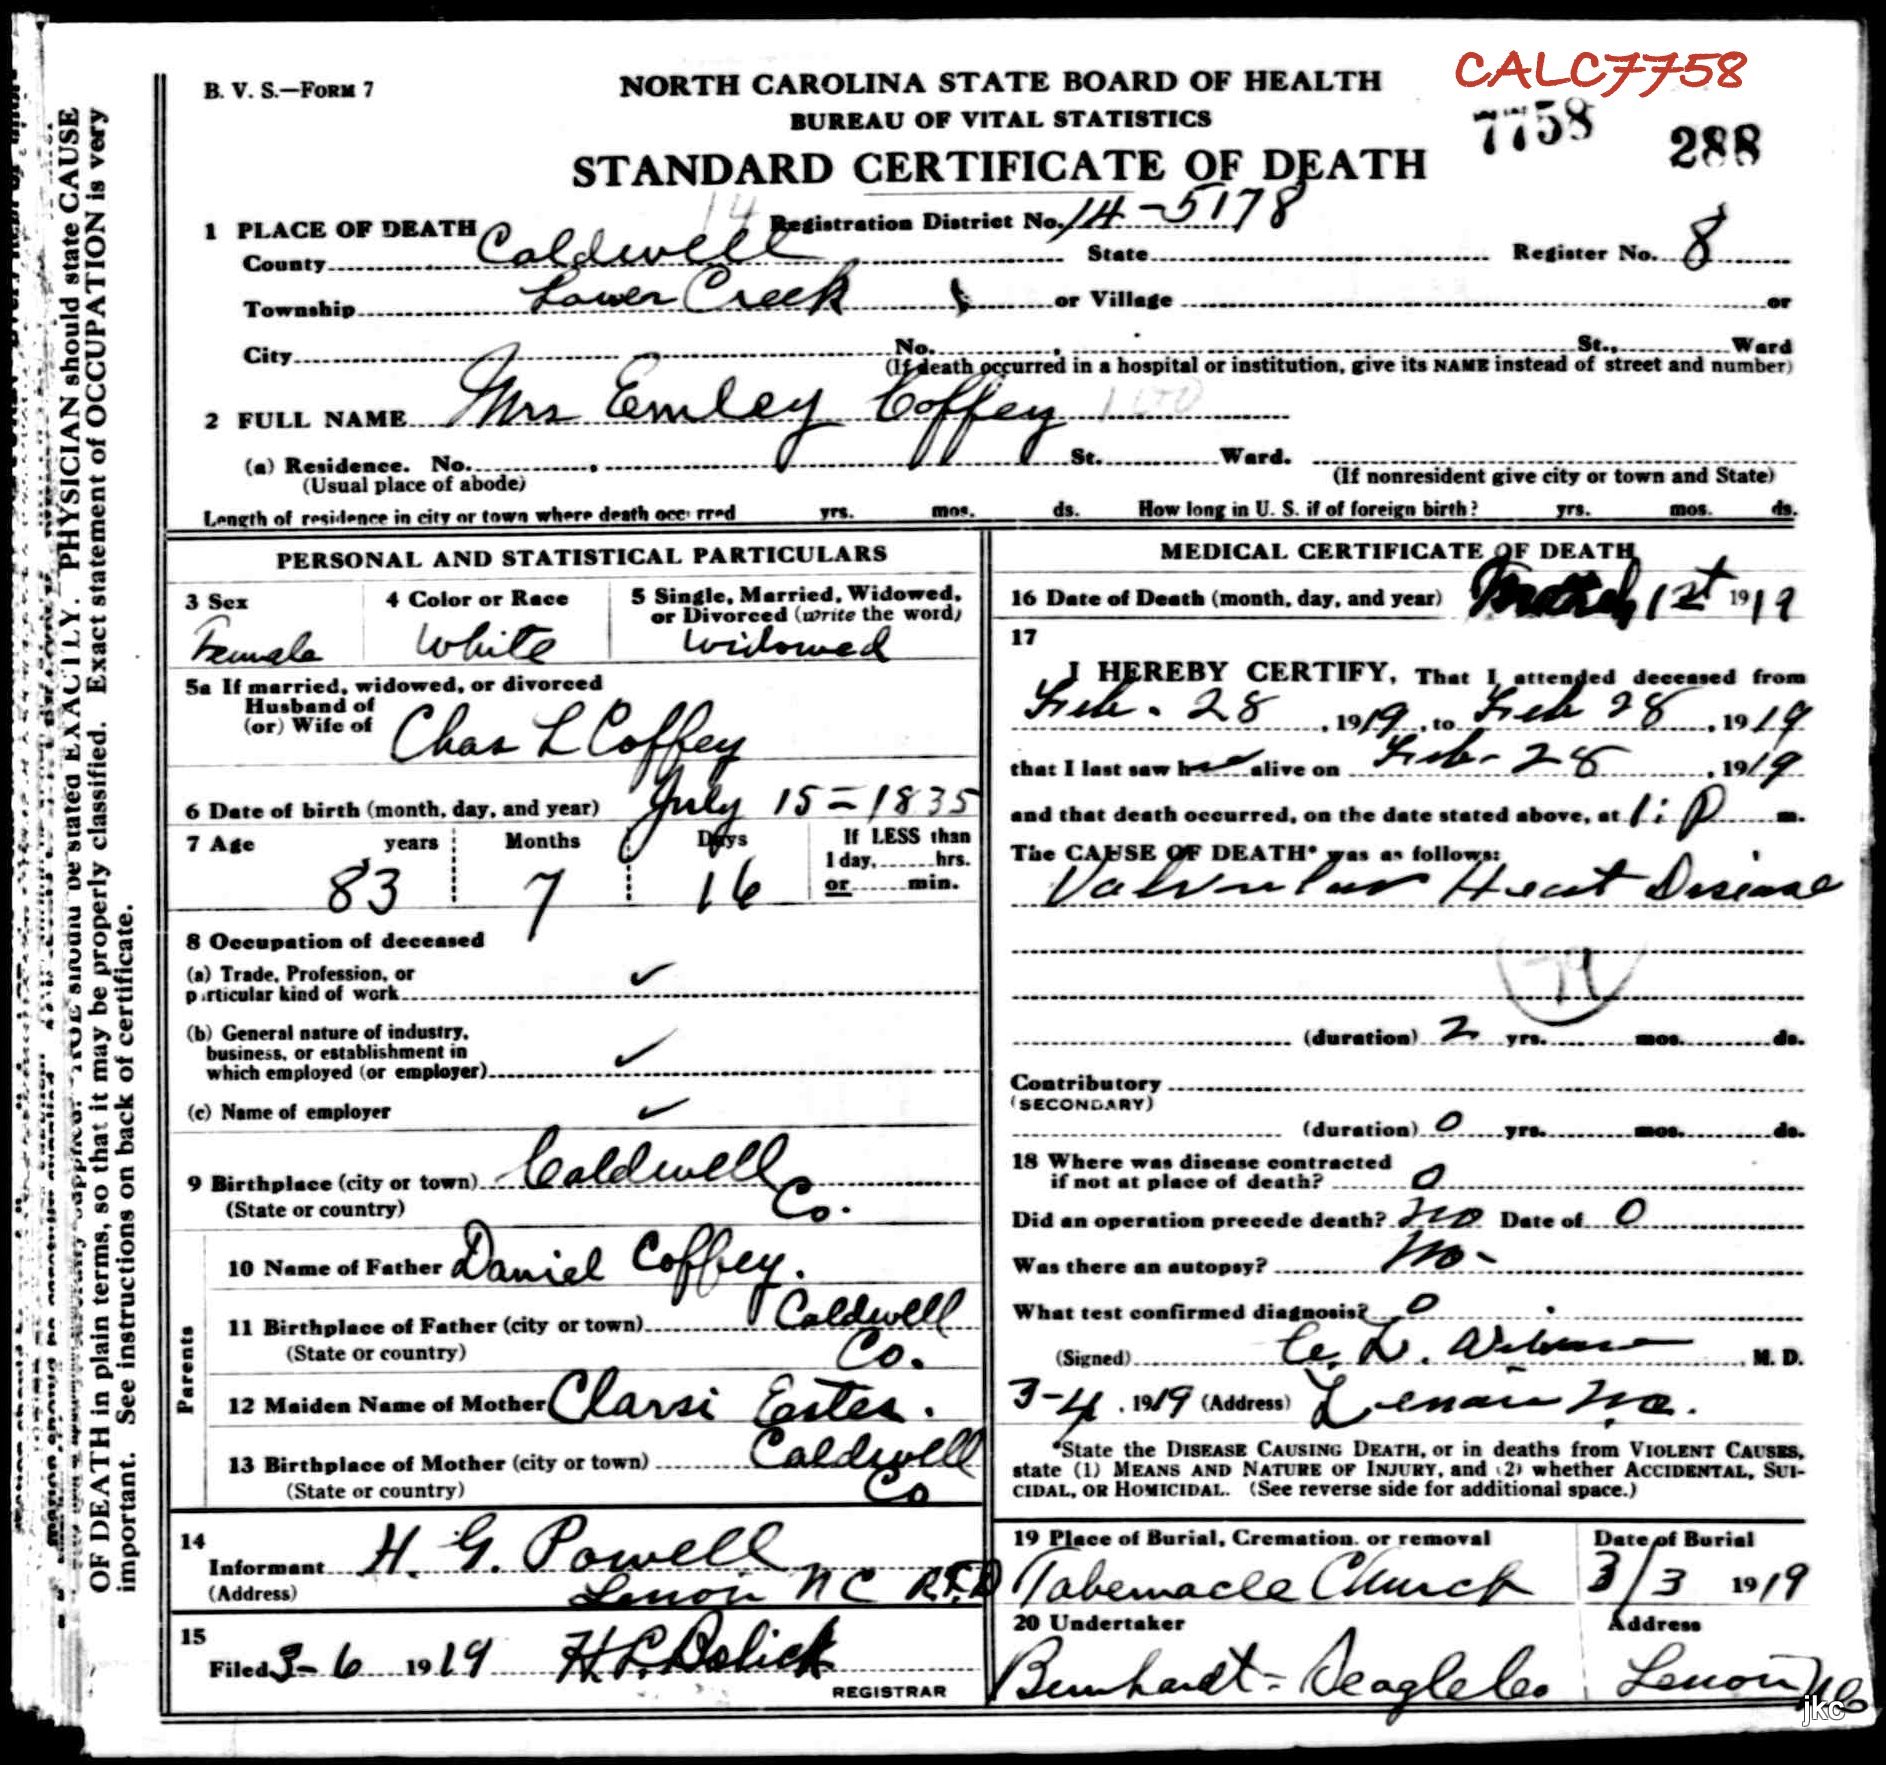 CALC7758
B. V. S.—FORM 7
NORTH CAROLINA STATE BOARD OF HEALTH
BUREAU OF VITAL STATISTICS
7758 288
STANDARD CERTIFICATE OF DEATH
1 PLACE OF DEATH 14 Registration District No. 14-5178
County Caldwell State Register No. 8
Township Lower Creek or Village or
City No. St., Ward
(If death occurred in a hospital or institution, give its NAME instead of street and number)
2 FULL NAME Mrs Emley Coffey
(a) Residence. No. St. Ward.
(Usual place of abode) (If nonresident give city or town and State)
Length of residence in city or town where death occurred yrs. mos. ds. How long in U. S. if of foreign birth? yrs. mos. ds.
PERSONAL AND STATISTICAL PARTICULARS
3 Sex 4 Color or Race 5 Single, Married, Widowed,
or Divorced (write the word)
Female White Widowed
5a If married, widowed, or divorced
Husband of
(or) Wife of Chas L Coffey
6 Date of birth (month, day, and year) July 15=1835
7 Age years Months Days If LESS than
1 day, hrs.
or min.
83 7 16
8 Occupation of deceased
(a) Trade, Profession, or
particular kind of work ✓
(b) General nature of industry,
business, or establishment in
which employed (or employer) ✓
(c) Name of employer ✓
9 Birthplace (city or town) Caldwell
(State or country) Co.
Parents
10 Name of Father Daniel Coffey.
11 Birthplace of Father (city or town) Caldwell
(State or country) Co.
12 Maiden Name of Mother Clarsi Estes.
13 Birthplace of Mother (city or town) Caldwell
(State or country) Co
14
Informant H. G. Powell
(Address) Lenoir N C R.F.D
15
Filed 3-6 1919 H.C.
REGISTRAR
MEDICAL CERTIFICATE OF DEATH
16 Date of Death (month, day, and year) March 1st 1919
17
I HEREBY CERTIFY, That I attended deceased from
Feb. 28, 1919, to Feb 28, 1919
that I last saw her alive on Feb- 28, 1919
and that death occurred, on the date stated above, at 1: P m.
The CAUSE OF DEATH* was as follows:
Valvular Heart Disease
79
(duration) 2 yrs. mos. ds.
Contributory
(SECONDARY)
(duration) 0 yrs. mos. ds.
18 Where was disease contracted
if not at place of death? 0
Did an operation precede death? No Date of 0
Was there an autopsy? No-
What test confirmed diagnosis? 0
(Signed) M. D.
3-4, 1919 (Address) Lenoir N.C.
*State the DISEASE CAUSING DEATH, or in deaths from VIOLENT CAUSES,
state (1) MEANS AND NATURE OF INJURY, and (2) whether ACCIDENTAL, SUI-
CIDAL, OR HOMICIDAL. (See reverse side for additional space.)
19 Place of Burial, Cremation, or removal Date of Burial
Tabernacle Church 3/3 1919
20 Undertaker Address
Bernhardt-Seagle Co Lenoir NC
jkc
PHYSICIAN should state CAUSE
be stated EXACTLY.
OF DEATH in plain terms, so that it may be properly classified. Exact statement of OCCUPATION is very
important. See instructions on back of certificate.